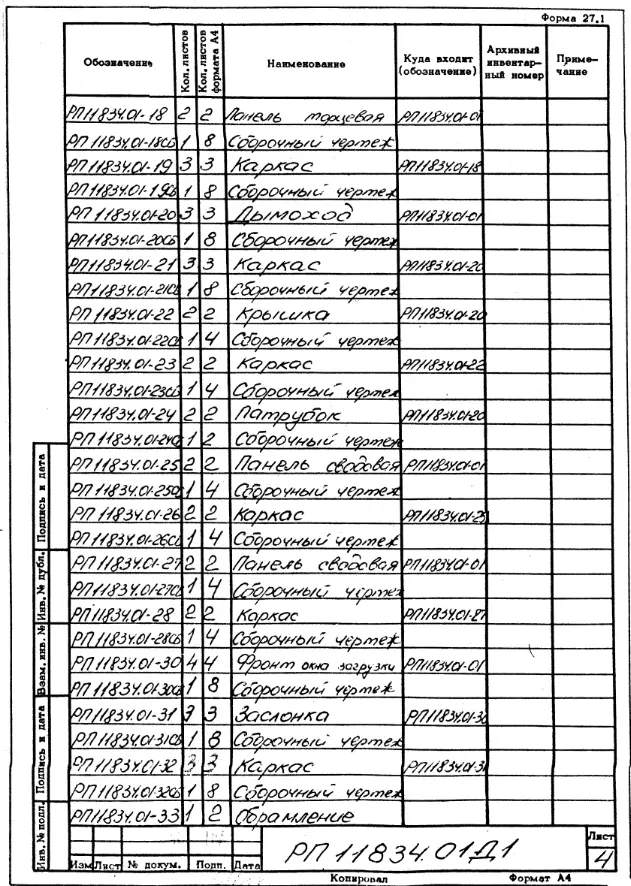 Форма 27.1
Обозначение Кол. листов Кол. листов формата А4 Наименование Куда входит (обозначение) Архивный инвентарный номер Примечание
РП11834.01-18 2 2 Панель торцевая РП11834.01-01
РП11834.01-18СБ 1 8 Сборочный чертеж
РП11834.01-19 3 3 Каркас РП11834.01-18
РП11834.01-19СБ 1 8 Сборочный чертеж
РП11834.01-20 3 3 Дымоход РП11834.01-01
РП11834.01-20СБ 1 8 Сборочный чертеж
РП11834.01-21 3 3 Каркас РП11834.01-20
РП11834.01-21СБ 1 8 Сборочный чертеж
РП11834.01-22 2 2 Крышка РП11834.01-20
РП11834.01-22СБ 1 4 Сборочный чертеж
РП11834.01-23 2 2 Каркас РП11834.01-22
РП11834.01-23СБ 1 4 Сборочный чертеж
РП11834.01-24 2 2 Патрубок РП11834.01-20
РП11834.01-24СБ 1 2 Сборочный чертеж
РП11834.01-25 2 2 Панель сводовая РП11834.01-01
РП11834.01-25СБ 1 4 Сборочный чертеж
РП11834.01-26 2 2 Каркас РП11834.01-25
РП11834.01-26СБ 1 4 Сборочный чертеж
РП11834.01-27 2 2 Панель сводовая РП11834.01-01
РП11834.01-27СБ 1 4 Сборочный чертеж
РП11834.01-28 2 2 Каркас РП11834.01-27
РП11834.01-28СБ 1 4 Сборочный чертеж
РП11834.01-30 4 4 Фронт окна загрузки РП11834.01-01
РП11834.01-30СБ 1 8 Сборочный чертеж
РП11834.01-31 3 3 Заслонка РП11834.01-30
РП11834.01-31СБ 1 8 Сборочный чертеж
РП11834.01-32 3 3 Каркас РП11834.01-31
РП11834.01-32СБ 1 8 Сборочный чертеж
РП11834.01-33 1 2 Обрамление
Инв. № подл. Подпись и дата Взам. инв. № Инв. № дубл. Подпись и дата
Изм Лист № докум. Подп. Дата
РП 11834.01Д1
Лист
4
Копировал Формат А4